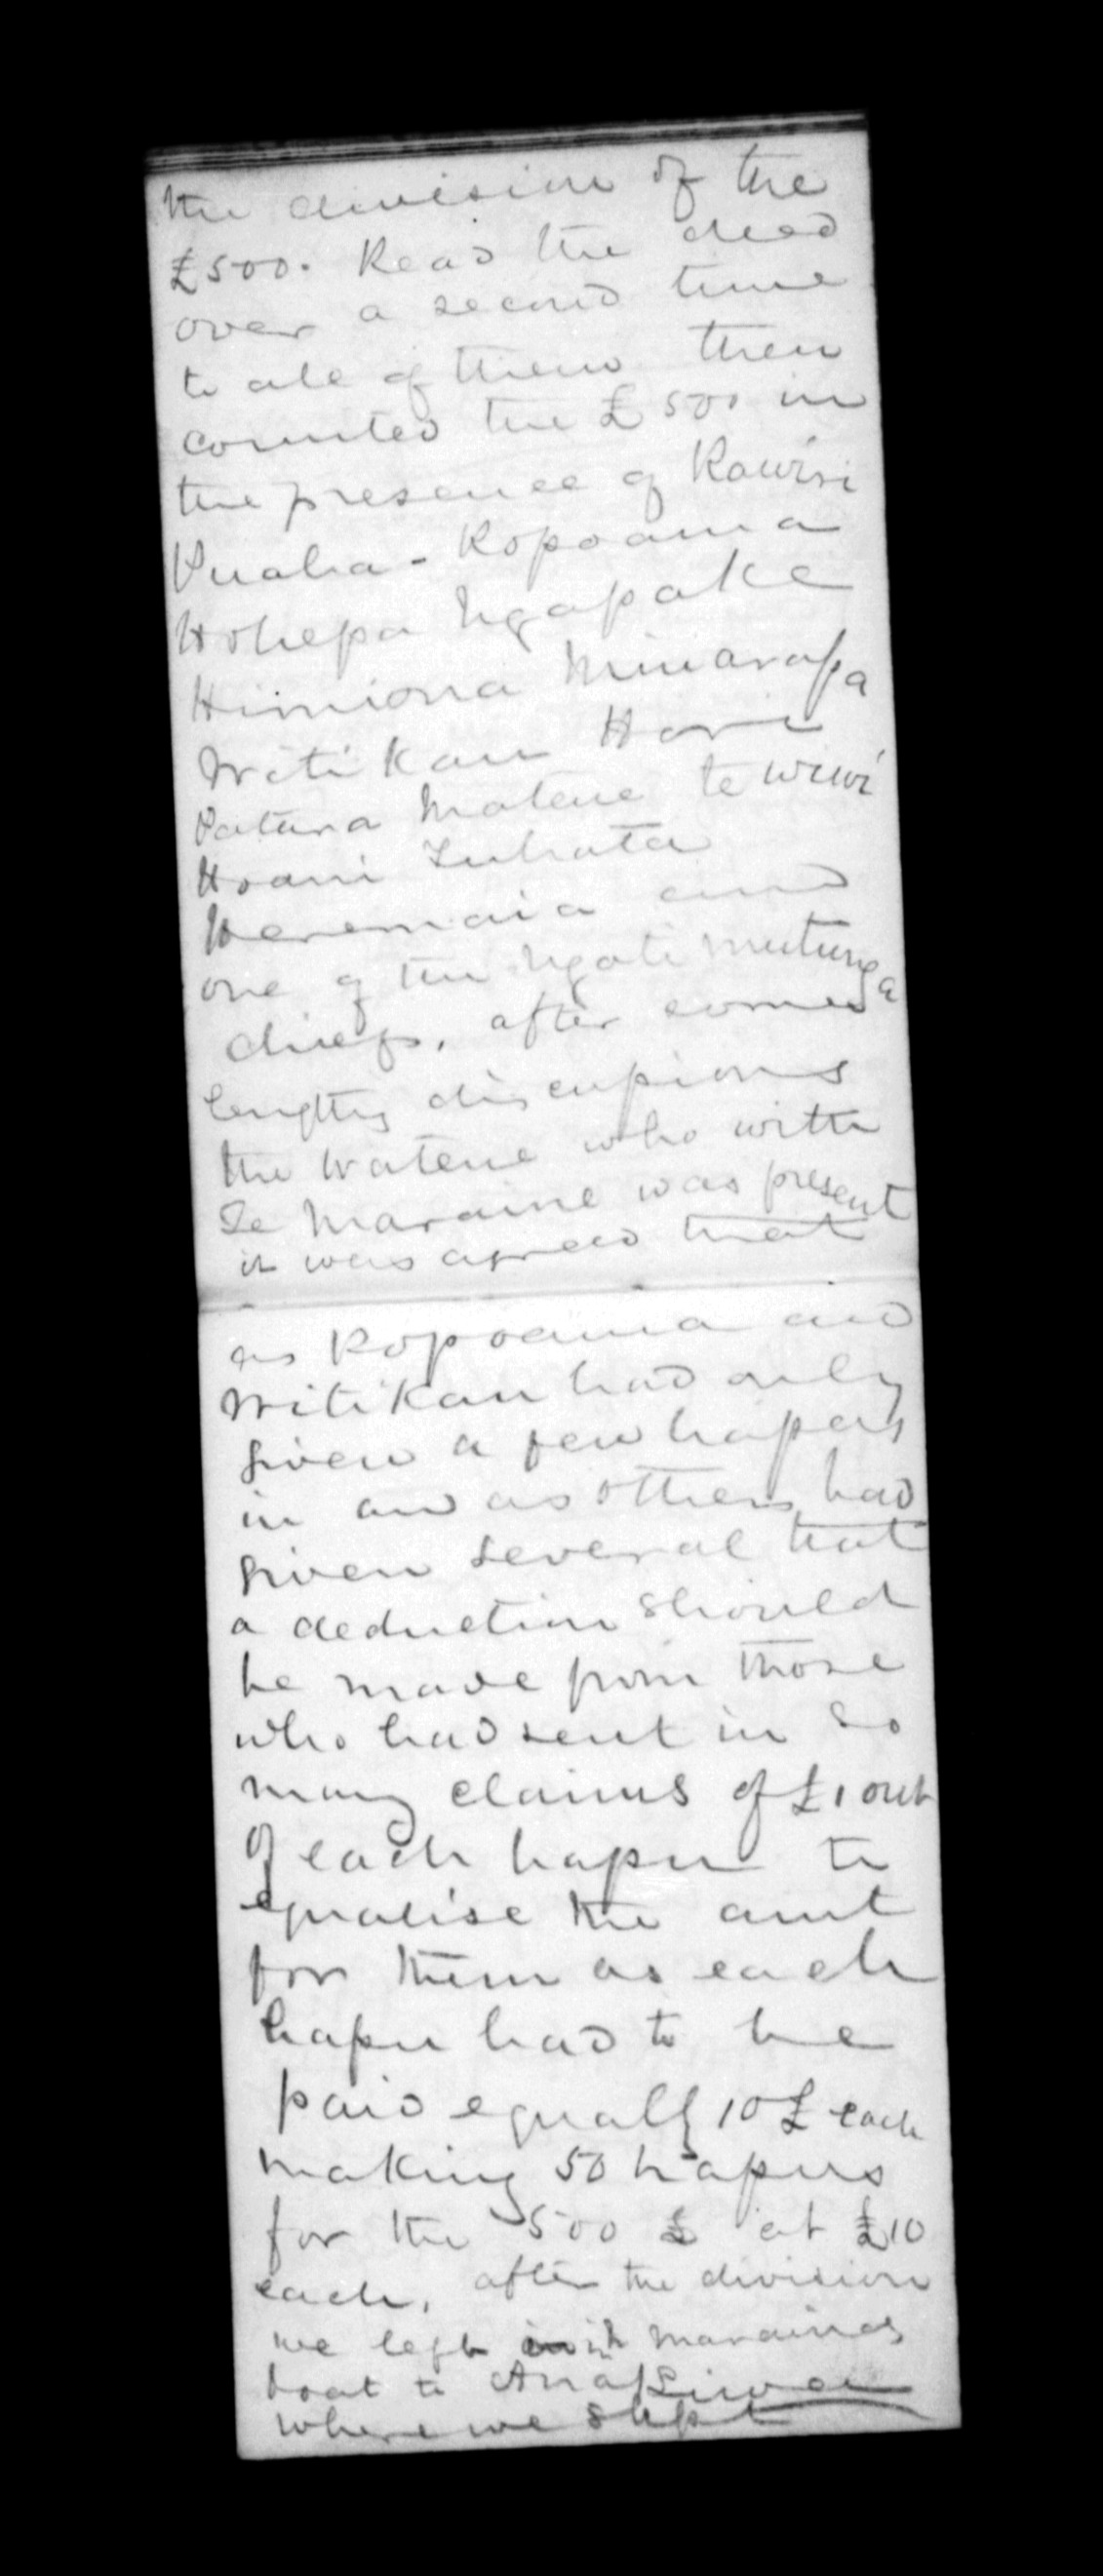 the division of the
£500. Read the deed
over a second time
to all of them then
counted the £500 in
the presence of Rawiri
Puaha - Ropoama
Hohepa Ngapake
Himiona Minarapa
Witikau Hori
Patura Matene te wiwi
Hoani Tuhata
Heremaia and
one of the Ngati mutunga
chiefs, after some
lengthy discussions
the Watene who with
Te Maraine was present
it was agreed that
as Ropoama and
Witikau had only
given a few hapus
in and as others had
given several that
a deduction should
be made from those
who had sent in so
many claims of £1 out
of each hapu to
equalise the amt
for them as each
hapu had to be
paid equally 10£ each
making 50 hapus
for the 500 £ at £10
each, after the division
we left in maraines
boat to Anakiwa
where we slept